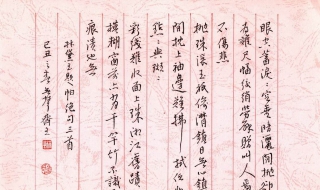 眼空蓄淚淚空垂暗灑閒拋卻
為誰尺幅鮫綃勞解贈叫人焉得
不傷悲
拋珠滾玉只偷潸鎮日無心鎮日
閒枕上袖邊難拂拭任他點
點與斑斑
彩線難收面上珠湘江舊蹟已
模糊窗前亦有千竿竹不識香
痕漬也無
林黛玉題帕絕句三首
己丑之春齋主